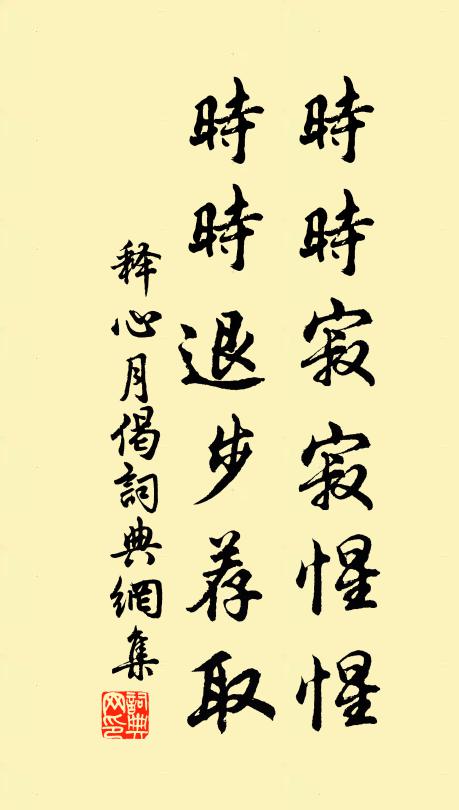 時時寂寂惺惺
時時退步荐取
释心月偈詞典網集
詞典网印